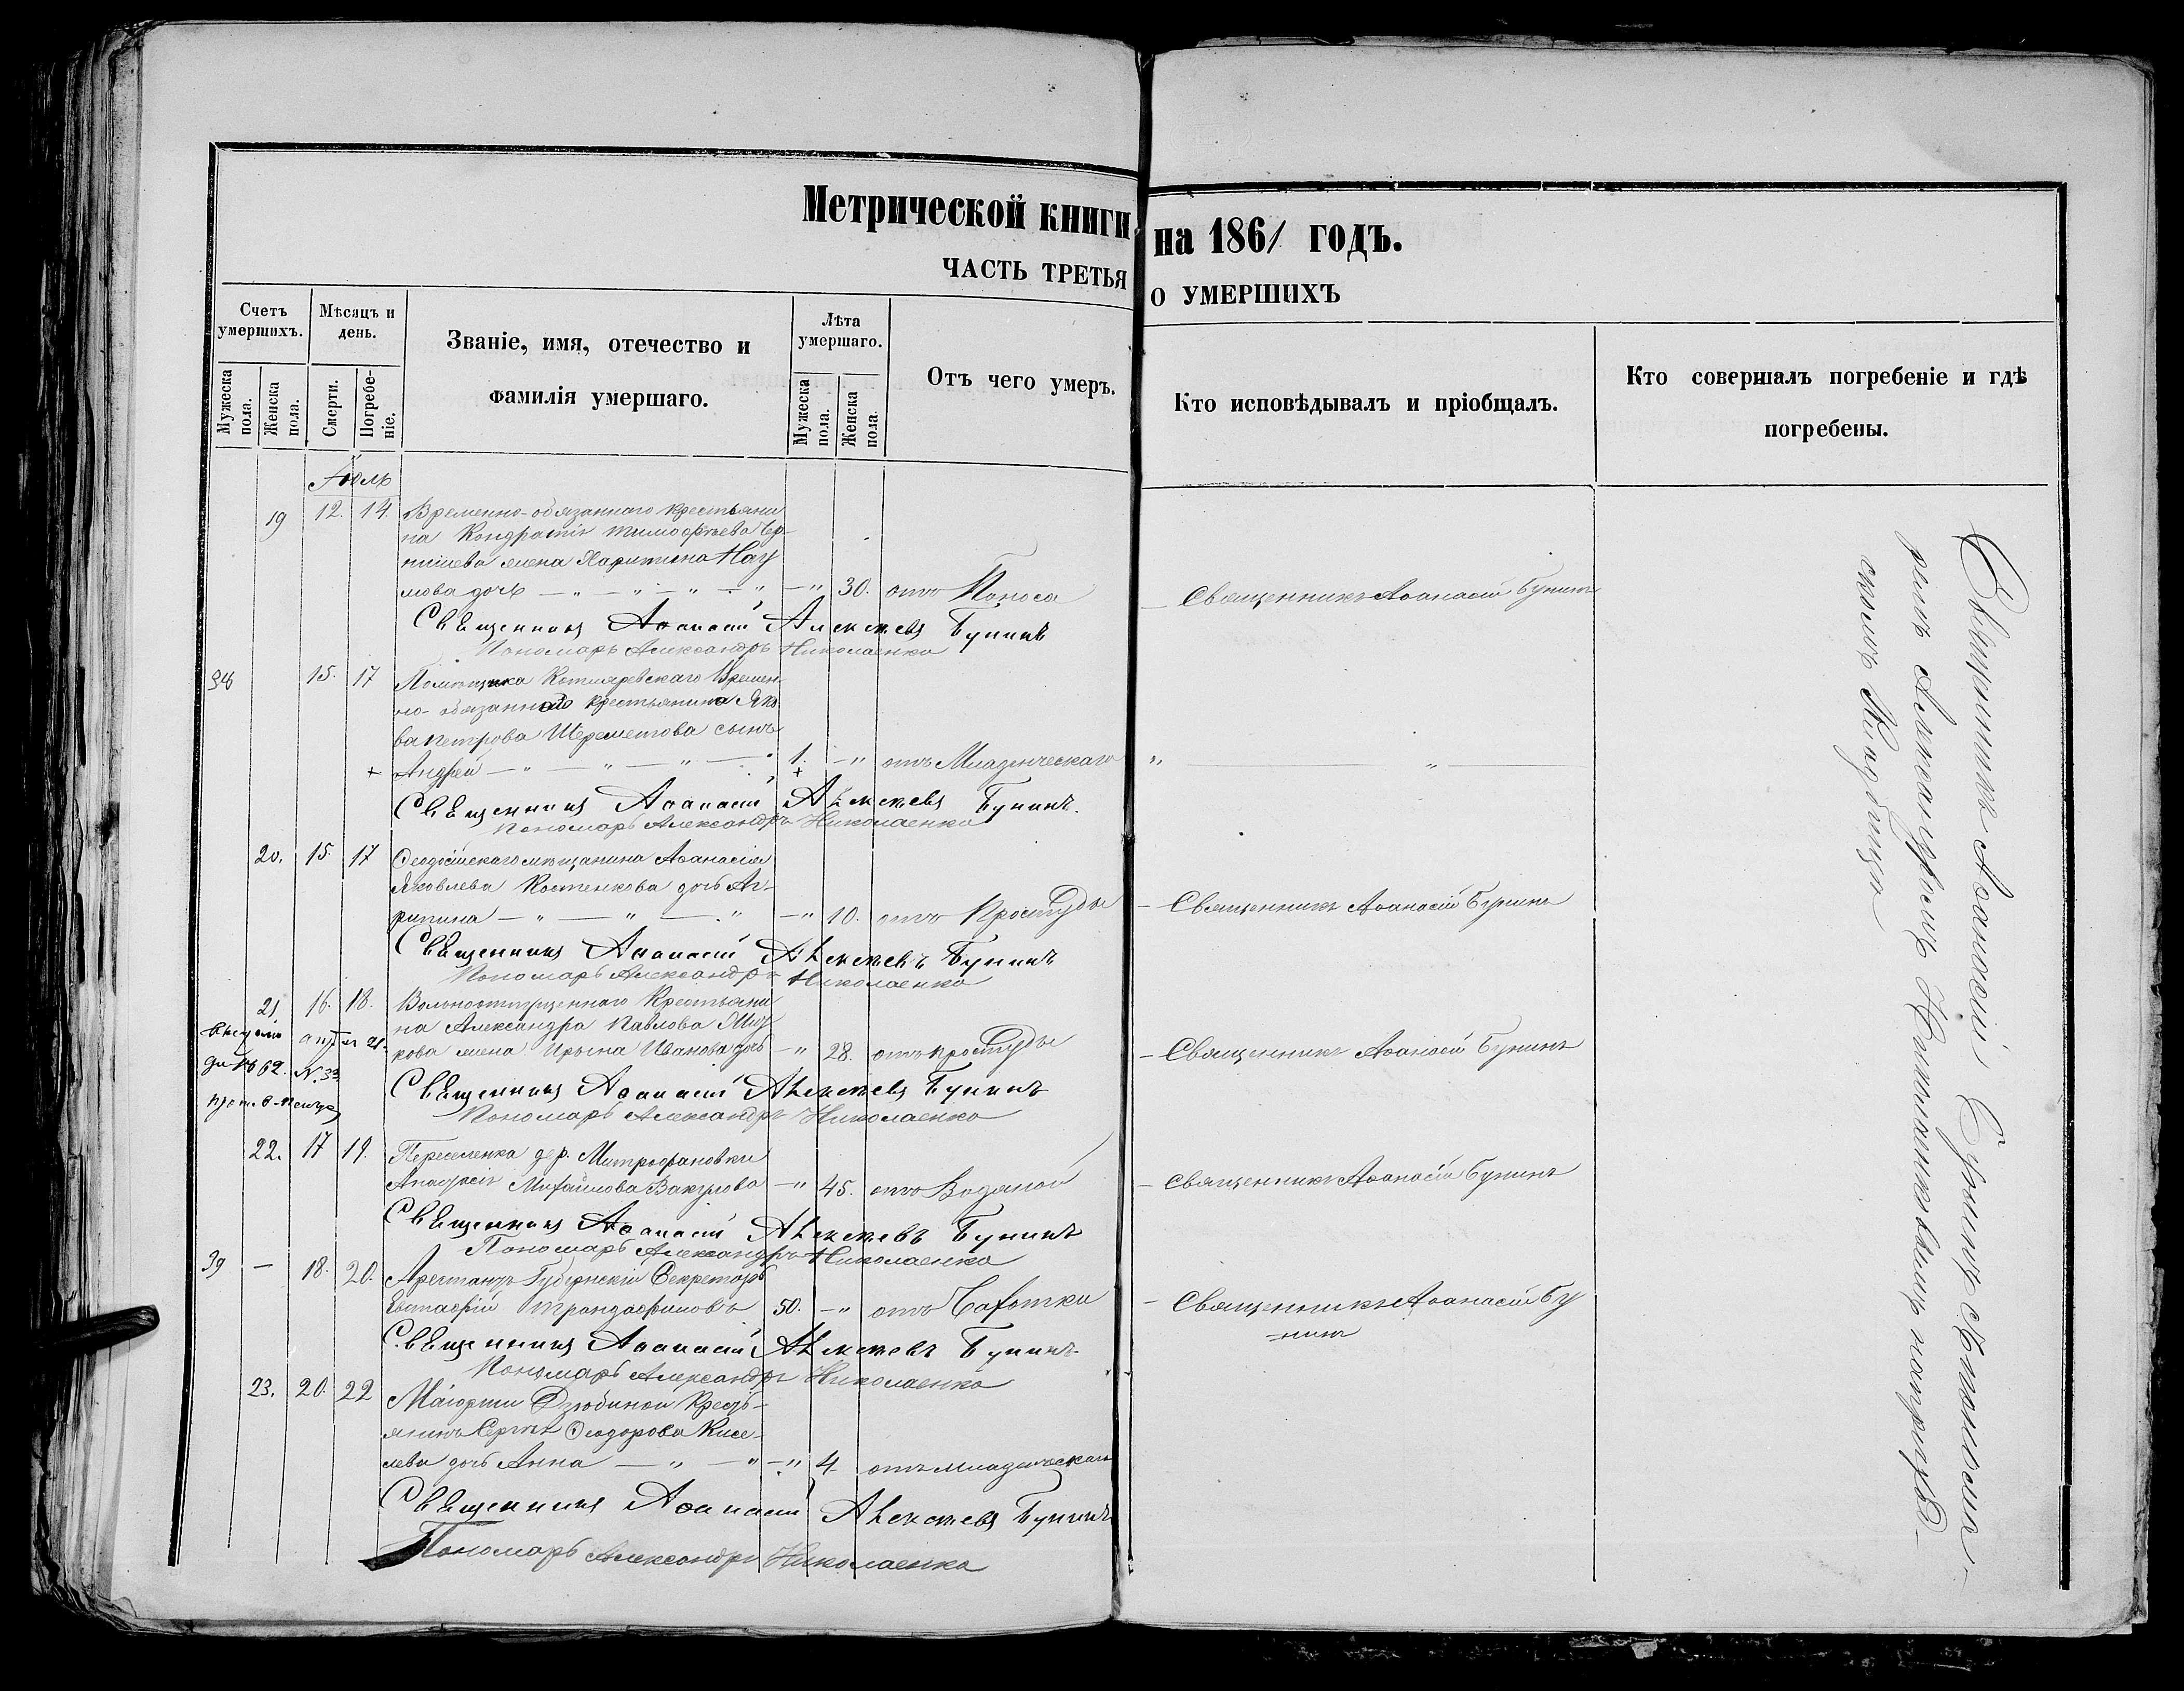 Метрической книги на 1861 годъ.
ЧАСТЬ ТРЕТЬЯ О УМЕРШИХЪ
Счетъ умершихъ.
Мужеска пола.
Женска пола.
Мѣсяцъ и день.
Смерти.
Погребеніе.
Званіе, имя, отечество и фамилія умершаго.
Лѣта умершаго.
Мужеска пола.
Женска пола.
Отъ чего умеръ.
Кто исповѣдывалъ и пріобщалъ.
Кто совершалъ погребеніе и гдѣ погребены.
Іюль
19 12. 14. Временно-обязаннаго крестьяни
на Кондратія Тимофѣева
жена Харитина Нау
мова дочь — " — " — " — " 30. отъ Поноса — Священникъ Аѳанасій Бунинъ
Священникъ Аѳанасій Алексѣевъ Бунинъ
Пономарь Александръ Николаенко
38 15. 17 Помѣщика Котляревскаго Времен-
но-обязаннаго крестьянина Яко
ва Петрова Шереметова сынъ
+ Андрей — " — " — " — 1. + — " отъ Младенческаго " — " —
Священникъ Аѳанасій Алексѣевъ Бунинъ.
Пономарь Александръ Николаенко
20. 15. 17 Ѳеодосійскаго мѣщанина Аѳанасія
Яковлева Костенкова дочь Аг-
рипина — " — " — " — " 10. отъ Простуды — Священникъ Аѳанасій Бунинъ
Священникъ Аѳанасій Алексѣевъ Бунинъ
Пономарь Александръ Николаенко
21 16. 18. Вольноотпущеннаго Крестьяни
на Александра Павлова
жена Ирына Иванова дочь — " 28. отъ простуды — Священникъ Аѳанасій Бунинъ
62. №33
Священникъ Аѳанасій Алексѣевъ Бунинъ
Пономарь Александръ Николаенко
22. 17 19. Переселенка дер. Митрофановки
Михайлова — " 45. отъ Водяной — Священникъ Аѳанасій Бунинъ
Священникъ Аѳанасій Алексѣевъ Бунинъ
Пономарь Александръ Николаенко
39 — 18. 20. Арестантъ Губернскій Секретарь
Евстафій Трандафиловъ 50. — " отъ Чахотки — Священникъ Аѳанасій Бу
нинъ
Священникъ Аѳанасій Алексѣевъ Бунинъ
Пономарь Александръ Николаенко
23. 20. 22 Маіорши Дзюбиной Кресть-
янина Сергѣя Ѳеодорова Кисе-
лева дочь Анна — " — " — " 4 отъ младенческаго
Священникъ Аѳанасій Алексѣевъ Бунинъ
Пономарь Александръ Николаенко
Священникъ Аѳанасій Бунинъ съ Пономаремъ Александромъ Николаенковымъ на
Кладбище